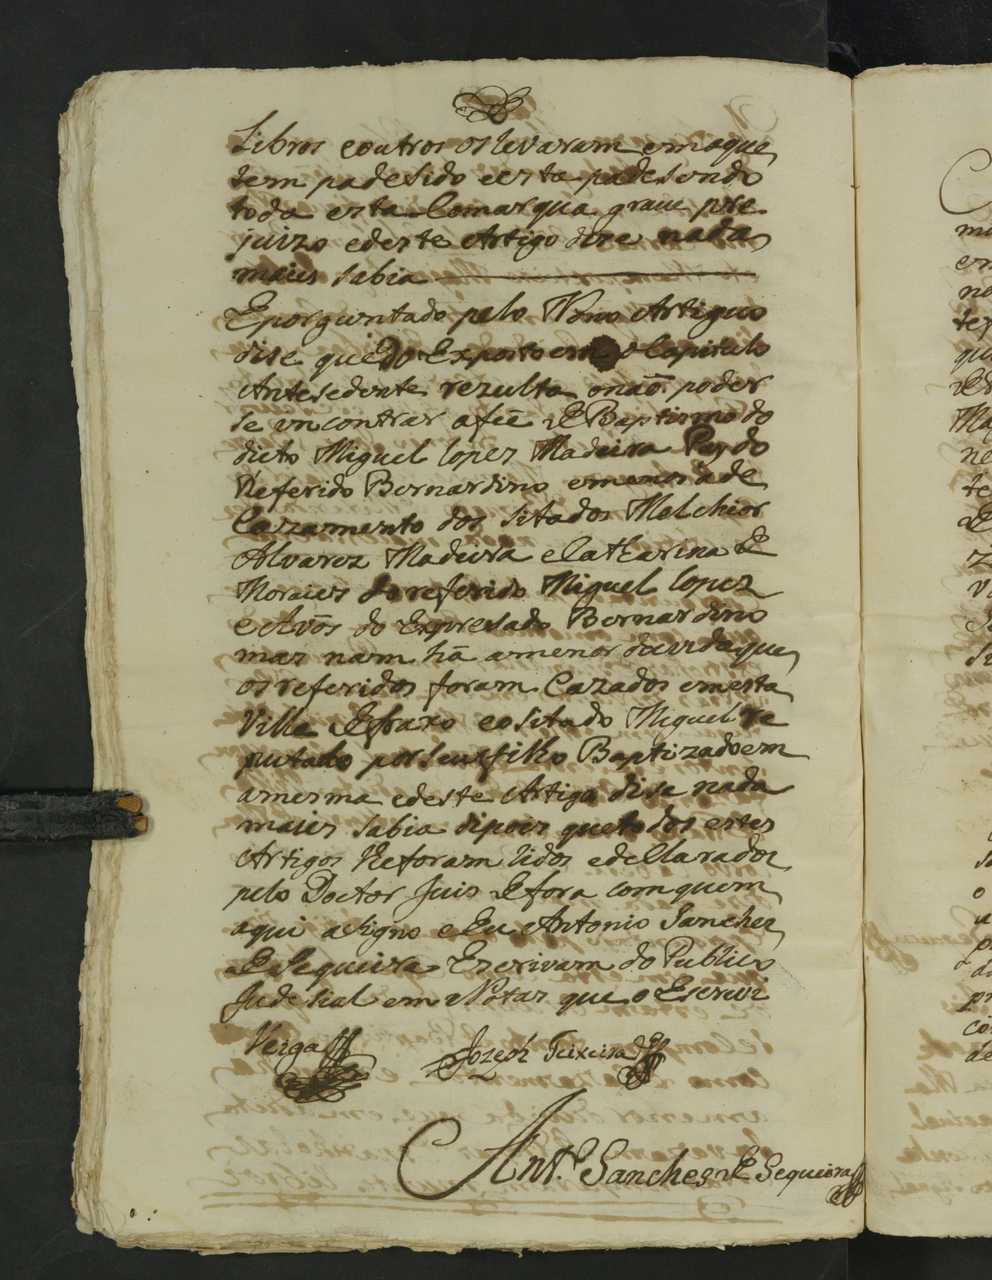 Libros eoutros os levaram emaque
tem padesido eesta padesendo
toda esta Comarqua grave pre
juizo edeste Artigo dise nada
maies sabia
Eporguntado pelo Nono Artiguo
dise que do Exposto em o Capitulo
Antesedente rezulta onaõ poder
se encontrar afee de Baptismo do
dieto Miguel lopez Madeira Pay do
Referido Bernardino emenos ade
Cazamento dos sitados Melchior
Alvarez Madeira eCatharina de
Moraies do referido Miguel lopez
eAvos do Expresado Bernardino
mas nam há amenor duvida que
os referidos foram Cazados emesta
Villa de frexo eo sitado Miguel re
putado por seu filho Baptizado em
amesma edeste Artigo dise nada
maies sabia dipois que todos estes
Artigos lhe foram lidos edecllarados
pelo Doctor Juis de fora com quem
aqui asigno eEu Antonio Sanches
de Sequeira Escrivam do Publico
Judesial em Notas que o Escrevi
Veiga
Jozeph Teixeira
Ant.º Sanches de Sequeira